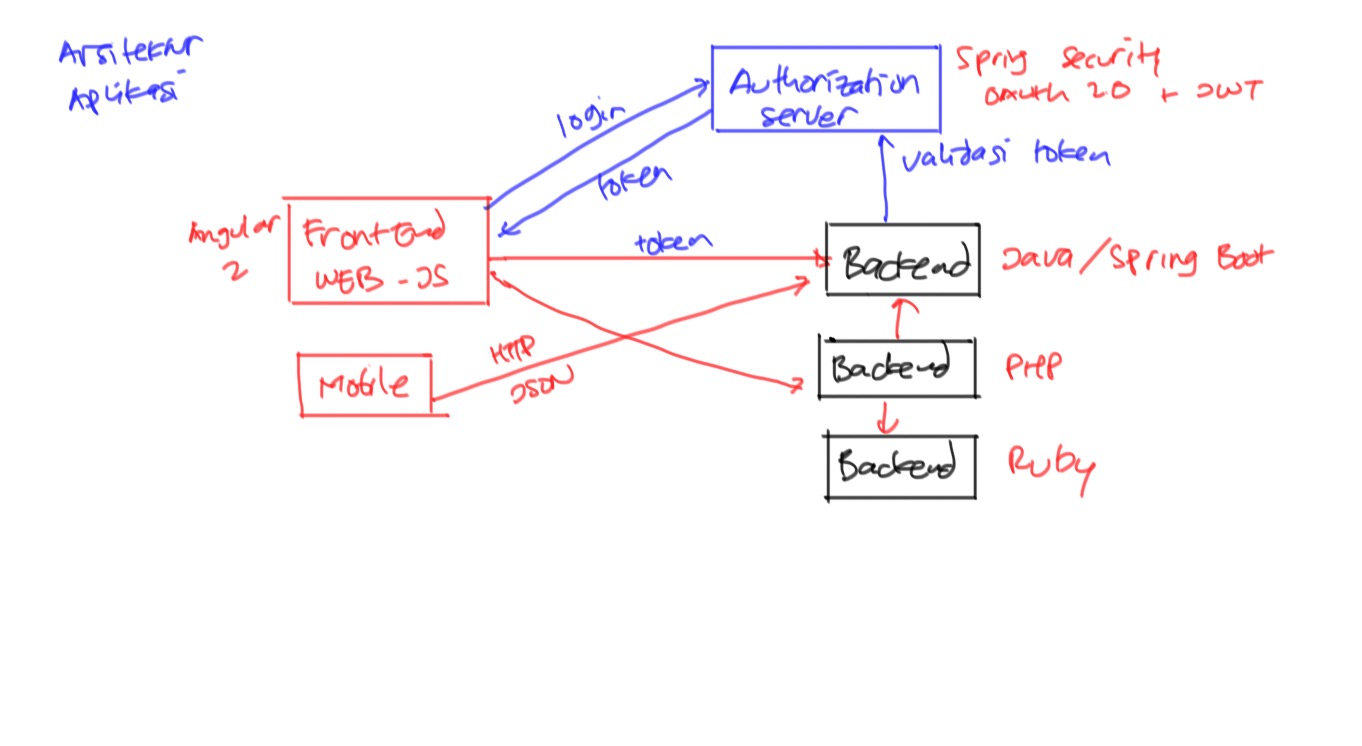 Arsitektur
Aplikasi
Authorization
server
Spring security
OAuth 2.0 + JWT
login
token
validasi token
Angular
2
FrontEnd
WEB - JS
token
Backend
Java/Spring Boot
Mobile
HTTP
JSON
Backend
PHP
Backend
Ruby